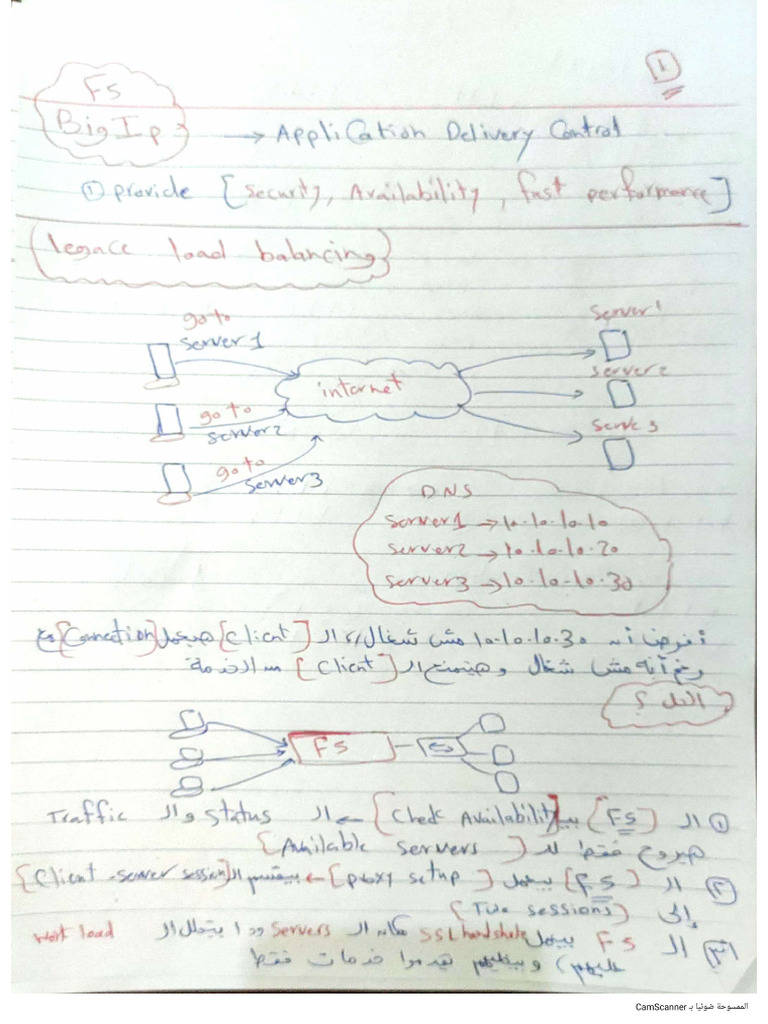 ١
F5
Big Ip → Application Delivery Control
① provide [security, Availability, fast performance]
legace load balancing
go to
server 1
go to
server2
go to
server3
internet
Server 1
server 2
Serve 3
DNS
Server1 → 10.10.10.10
server2 → 10.10.10.20
server3 → 10.10.10.30
أفرض أنه 10.10.10.30 مش شغال الـ [Client] هيعمل [Connection] مع
رغم أنه مش شغال وهيمنع الـ [Client] من الخدمة
الحل؟
F5
① الـ [F5] بيـ [Check Availability] ← الـ Status والـ Traffic
هيروح فقط للـ [Available Servers]
② الـ [F5] بيعمل [proxy setup] ← بيقسم الـ [Client-server session]
إلى [Two sessions]
③ الـ F5 بيعمل SSL handshake مكان الـ Servers ودا بيقلل الـ Work load
عليهم وبيخليهم يقدموا خدمات فقط
الممسوحة ضوئيا بـ CamScanner